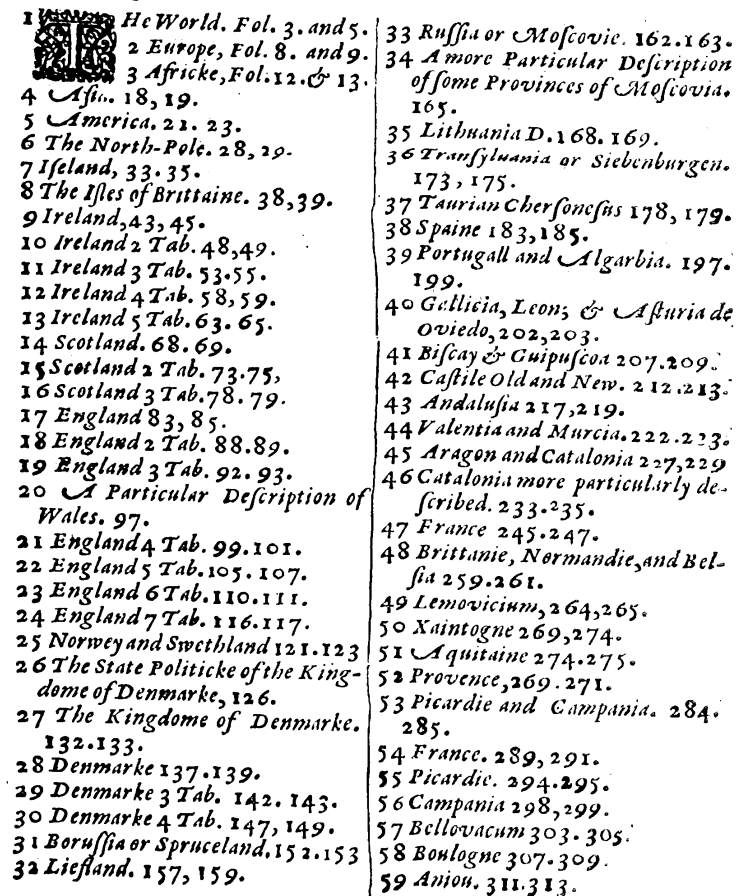 1 THe World. Fol. 3. and 5.
2 Europe, Fol. 8. and 9.
3 Africke, Fol. 12. & 13.
4 Asia. 18, 19.
5 America. 21. 23.
6 The North-Pole. 28, 29.
7 Iſeland, 33. 35.
8 The Iſles of Brittaine. 38, 39.
9 Ireland, 43, 45.
10 Ireland 2 Tab. 48, 49.
11 Ireland 3 Tab. 53. 55.
12 Ireland 4 Tab. 58, 59.
13 Ireland 5 Tab. 63. 65.
14 Scotland. 68. 69.
15 Scotland 2 Tab. 73. 75,
16 Scotland 3 Tab. 78. 79.
17 England 83, 85.
18 England 2 Tab. 88. 89.
19 England 3 Tab. 92. 93.
20 A Particular Deſcription of
Wales. 97.
21 England 4 Tab. 99. 101.
22 England 5 Tab. 105. 107.
23 England 6 Tab. 110. 111.
24 England 7 Tab. 116. 117.
25 Norwey and Swethland 121. 123
26 The State Politicke of the King-
dome of Denmarke, 126.
27 The Kingdome of Denmarke.
132. 133.
28 Denmarke 137. 139.
29 Denmarke 3 Tab. 142. 143.
30 Denmarke 4 Tab. 147, 149.
31 Boruſſia or Spruceland. 152. 153
32 Liefland. 157, 159.
33 Ruſſia or Moſcovie. 162. 163.
34 A more Particular Deſcription
of ſome Provinces of Moſcovia.
165.
35 Lithuania D. 168. 169.
36 Tranſylvania or Siebenburgen.
173, 175.
37 Taurian Cherſoneſus 178, 179.
38 Spaine 183, 185.
39 Portugall and Algarbia. 197.
199.
40 Gallicia, Leon; & Aſturia de
Oviedo, 202, 203.
41 Biſcay & Guipuſcoa 207. 209.
42 Caſtile Old and New. 212. 213.
43 Andaluſia 217, 219.
44 Valentia and Murcia. 222. 223.
45 Aragon and Catalonia 227, 229
46 Catalonia more particularly de-
ſcribed. 233. 235.
47 France 245. 247.
48 Brittanie, Normandie, and Bel-
ſia 259. 261.
49 Lemovicium, 264, 265.
50 Xaintogne 269, 274.
51 Aquitaine 274. 275.
52 Provence, 269. 271.
53 Picardie and Campania. 284.
285.
54 France. 289, 291.
55 Picardie. 294. 295.
56 Campania 298, 299.
57 Bellovacum 303. 305.
58 Boulogne 307. 309.
59 Aniou. 311. 313.